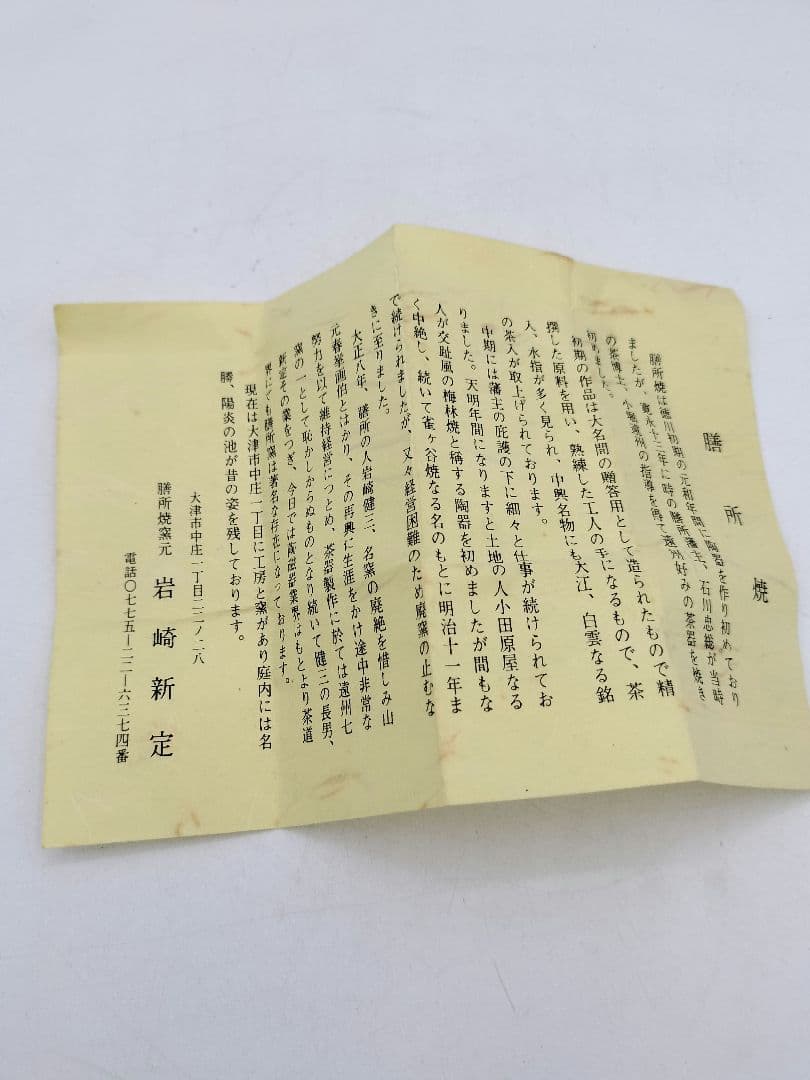 膳所焼
膳所焼は徳川初期の元和年間に陶器を作り初めており
ましたが、寛永十三年に時の膳所藩主、石川忠総が当時
の茶博士、小堀遠州の指導を得て遠州好みの茶器を焼き
初めました。
初期の作品は大名間の贈答用として造られたもので精
撰した原料を用い、熟練した工人の手になるもので、茶
入、水指が多く見られ、中興名物にも大江、白雲なる銘
の茶入が取上げられております。
中期には藩主の庇護の下に細々と仕事が続けられてお
りました。天明年間になりますと土地の人小田原屋なる
人が交趾風の梅林焼と称する陶器を初めましたが間もな
く中絶し、続いて雀ヶ谷焼なる名のもとに明治十一年ま
で続けられましたが、又々経営困難のため廃窯の止むな
きに至りました。
大正八年、膳所の人岩崎健三、名窯の廃絶を惜しみ山
元春挙画伯とはかり、その再興に生涯をかけ途中非常な
努力を以て維持経営につとめ、茶器製作に於ては遠州七
窯の一として恥かしからぬものとなり続いて健三の長男、
新定その業をつぎ、今日では陶磁器業界はもとより茶道
界にても膳所窯は著名な存在になっております。
現在は大津市中庄一丁目に工房と窯があり庭内には名
勝、陽炎の池が昔の姿を残しております。
大津市中庄一丁目二二ノ二八
膳所焼窯元 岩崎新定
電話〇七七五―二二―六三七四番